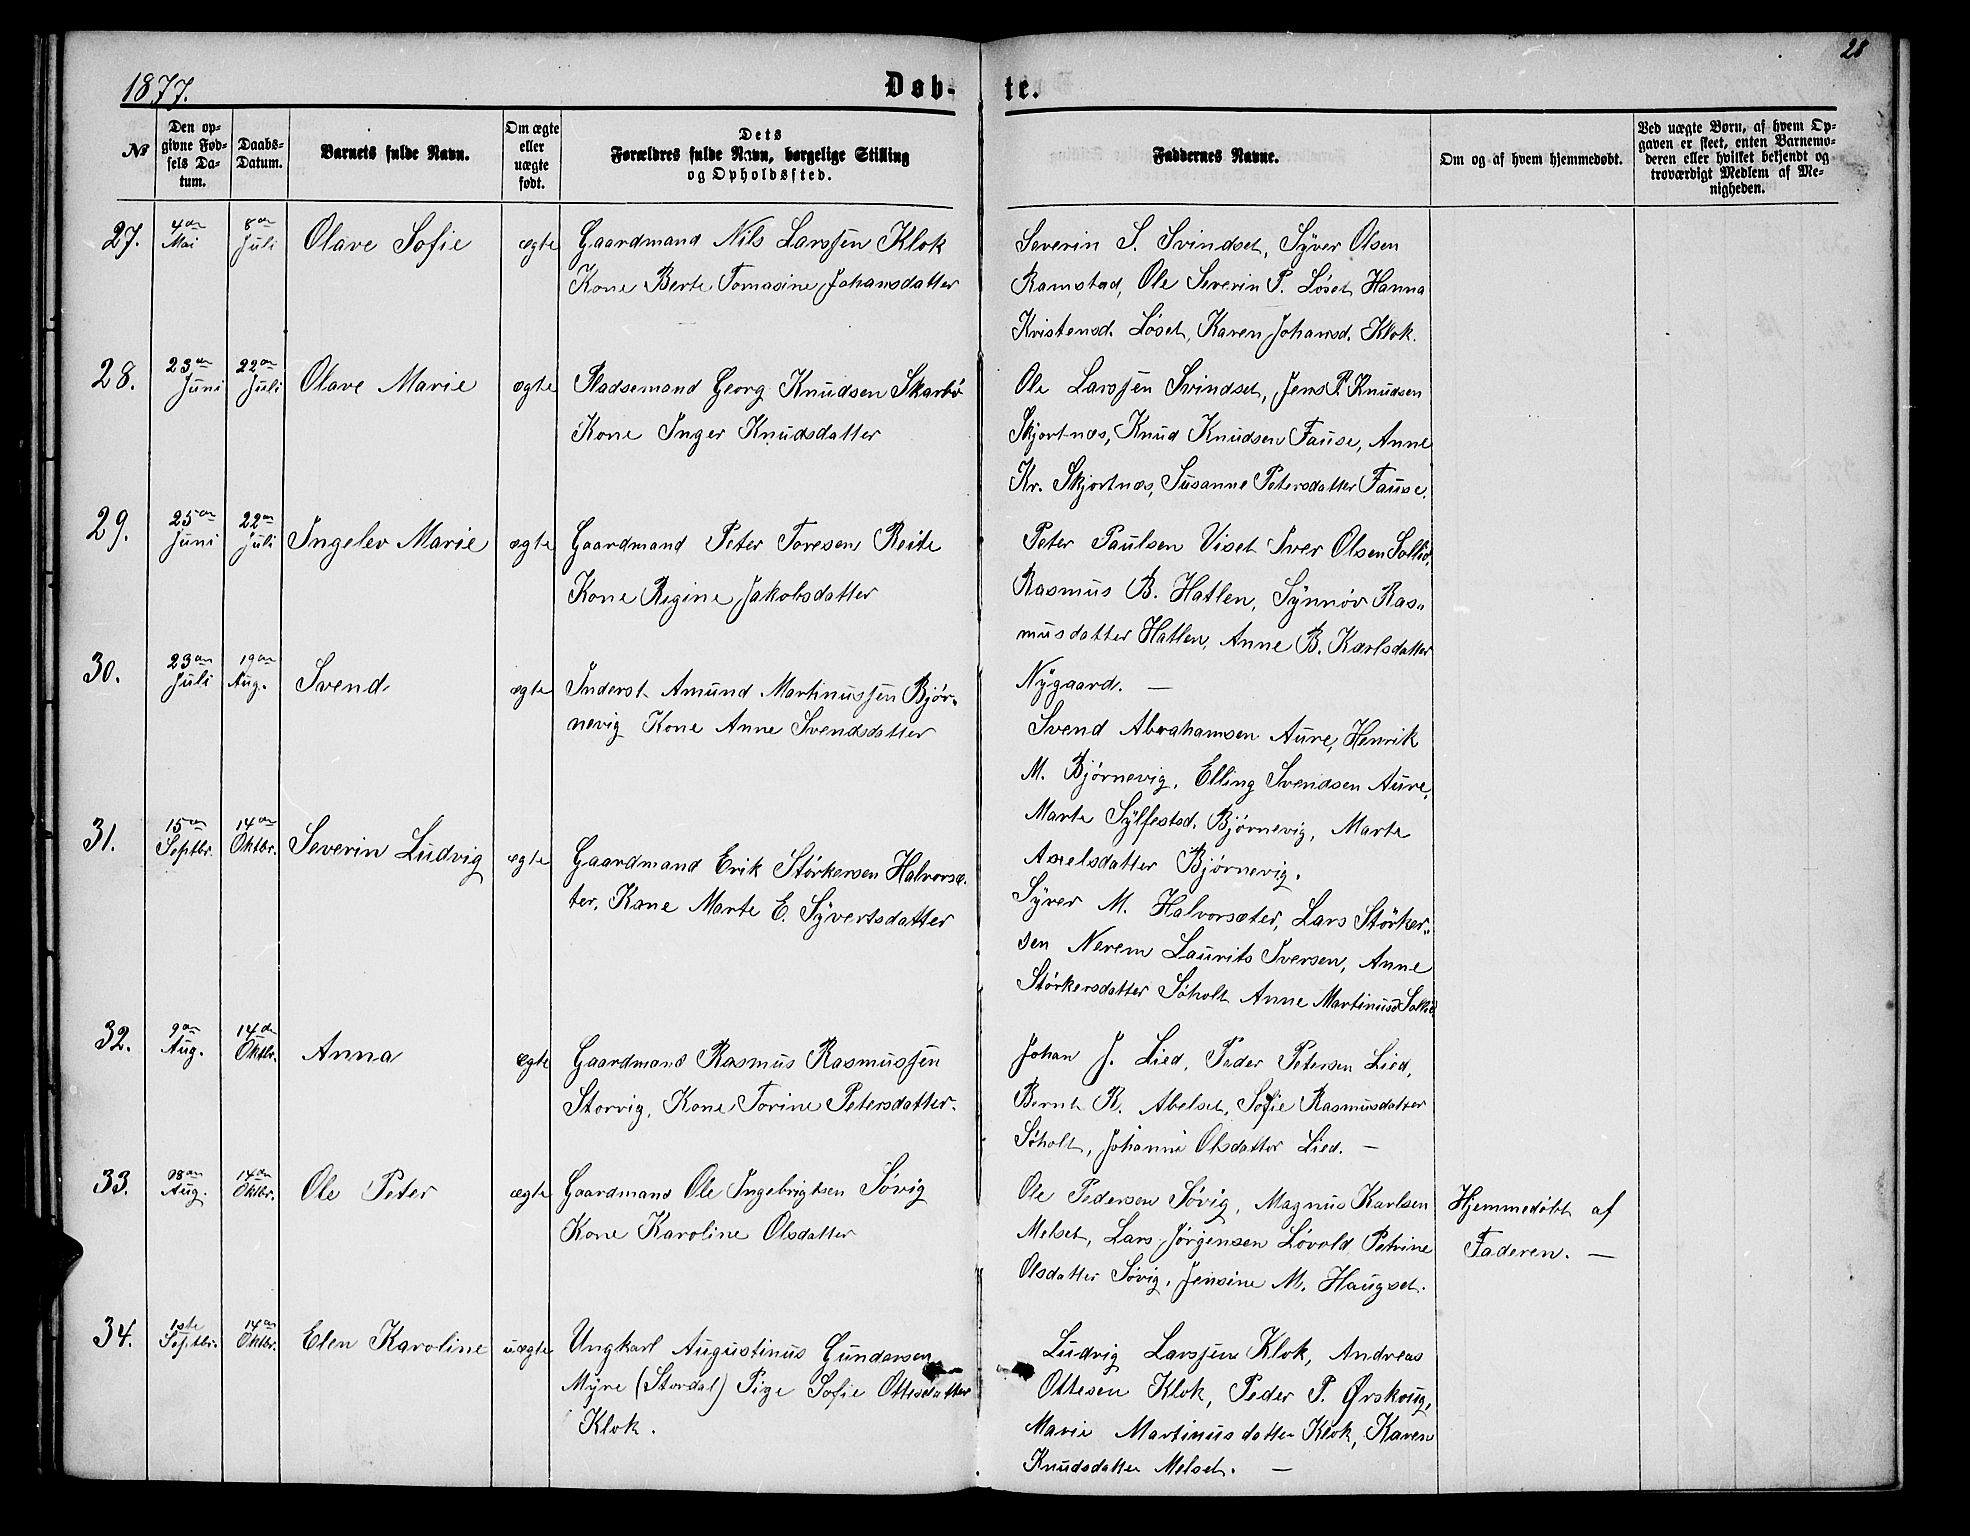 28
1877.
Døb-te.
№
Den opgivne Fødsels Datum.
Daabs-Datum.
Barnets fulde Navn.
Om ægte eller uægte født.
Dets Forældres fulde Navn, borgelige Stilling og Opholdssted.
Faddernes Navne.
Om og af hvem hjemmedøbt.
Ved uægte Børn, af hvem Opgaven er skeet, enten Barnemoderen eller hvilket bekjendt og troværdigt Medlem af Menigheden.
27. 4de Mai 8de Juli Olave Sofie ægte Gaardmand Nils Larssen Klok
Kone Berte Tomasine Johansdatter
Severin S. Svindset, Syver Olsen
Ramstad, Ole Severin P. Løset Hanna
Kristensd. Løset, Karen Johansd. Klok.
28. 23de Juni 22de Juli Olave Marie ægte Pladsemand Georg Knudsen Skarbø
Kone Inger Knudsdatter
Ole Larssen Svindset, Jens P. Knudsen
Skjortnæs, Knud Knudsen Fause, Anne
Kr. Skjortnæs, Susanne Petersdatter Fause.
29. 25de Juni 22de Juli Ingelev Marie ægte Gaardmand Peter Toresen Reite
Kone Regine Jakobsdatter
Peter Paulsen Viset Iver Olsen Sollid,
Rasmus B. Hatlen, Synnøv Ras-
musdatter Hatlen, Anne B. Karlsdatter
Nygaard. —
30. 23de Juli 19de Aug. Svend ægte Inderst Amund Martinussen Bjør-
nevig Kone Anne Svendsdatter
Svend Abrahamsen Aure, Henrik
M. Bjørnevig, Elling Svendsen Aure,
Marte Sylfestsd. Bjørnevig, Marte
Axelsdatter Bjørnevig.
31. 15de Septbr. 14de Oktbr. Severin Ludvig ægte Gaardmand Erik Størkersen Halvorsæ-
ter, Kone Marte E. Syvertsdatter
Syver M. Halvorsæter, Lars Størker-
sen Nerem Laurits Iversen, Anne
Størkersdatter Søholt Anne Martinusd
32. 9de Aug. 14de Oktbr. Anna ægte Gaardmand Rasmus Rasmussen
Storvig, Kone Torine Petersdatter.
Johan J. Lied, Peder Petersen Lied,
Bernt K. Abelset, Sofie Rasmusdatter
Søholt, Johanne Olsdatter Lied. —
33. 28de Aug. 14de Oktbr. Ole Peter ægte Gaardmand Ole Ingebrigtsen Søvig
Kone Karoline Olsdatter
Ole Pedersen Søvig, Magnus Karlsen
Melset, Lars Jørgensen Løvold Petrine
Olsdatter Søvig, Jensine M. Haugset.
Hjemmedøbt af
Faderen. —
34. 1ste Septbr. 14de Oktbr. Elen Karoline uægte Ungkarl Augustinus Gundersen
Myre (Stordal) Pige Sofie Ottesdatter
Klok.
Ludvig Larssen Klok, Andreas
Ottesen Klok, Peder P. Ørskoug,
Marie Martinusdatter Klok, Karen
Knudsdatter Melset. —